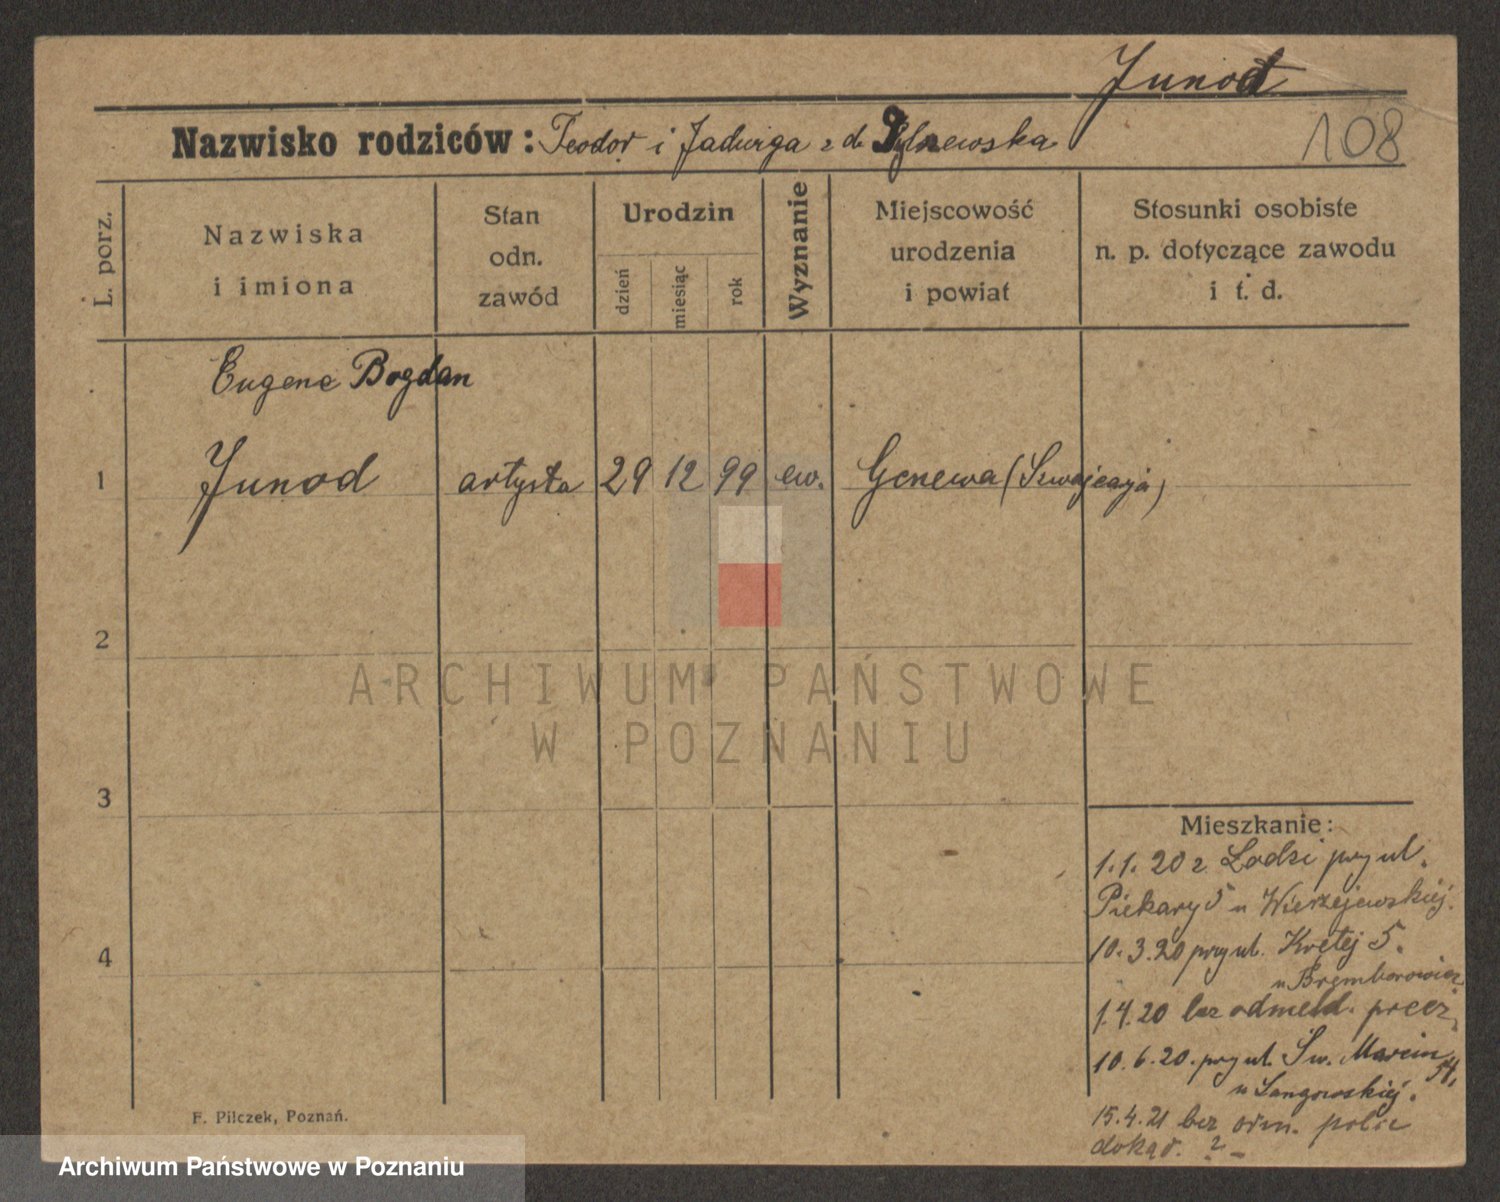 Junod
Nazwisko rodziców: Teodor i Jadwiga z d.
108
L. porz.
Nazwiska
i imiona
Stan
odn.
zawód
Urodzin
dzień
miesiąc
rok
Wyznanie
Miejscowość
urodzenia
i powiat
Stosunki osobiste
n. p. dotyczące zawodu
i t. d.
Eugene Bogdan
1 Junod artysta 29 12 99 ew. Genewa (Szwajcaryja)
2
3
4
ARCHIWUM PAŃSTWOWE
W POZNANIU
Mieszkanie:
1.1.20 z Lodzi przy ul.
Piekary 5 u Wierzejewskiej.
10.3.20 przy ul. Krętej 5.
1.4.20 bez odmeld. precz
10.6.20. przy ul. Św. Marcin
u
15.4.21 bez odm. polic
dokąd. ? -
F. Pilczek, Poznań.
Archiwum Państwowe w Poznaniu